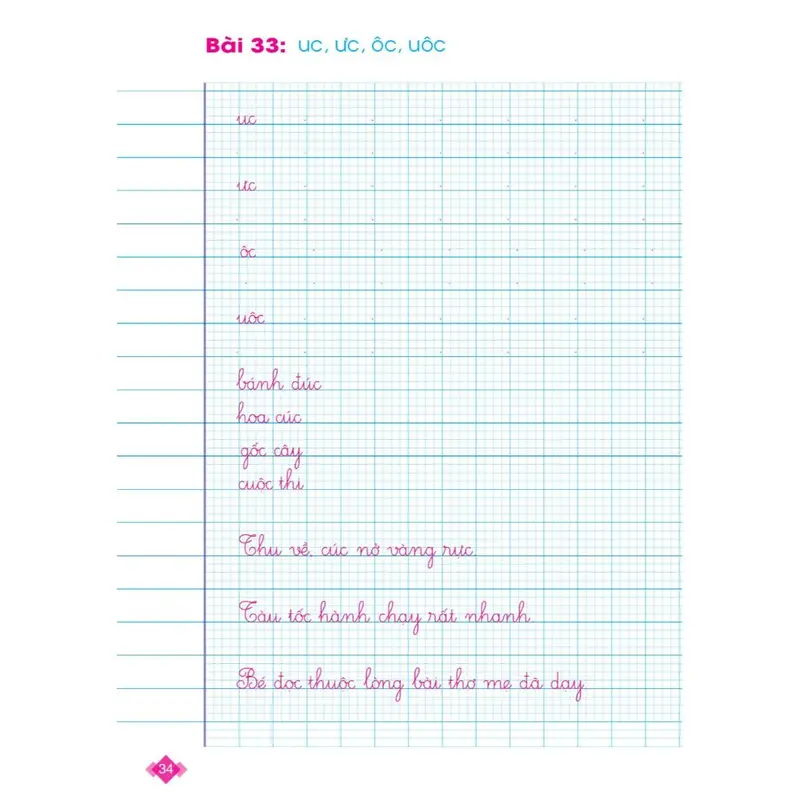 Bài 33: uc, ưc, ôc, uôc
uc
ưc
ôc
uôc
bánh đúc
hoa cúc
gốc cây
cuộc thi
Thu về, cúc nở vàng rực.
Tàu tốc hành chạy rất nhanh.
Bé đọc thuộc lòng bài thơ mẹ đã dạy
34